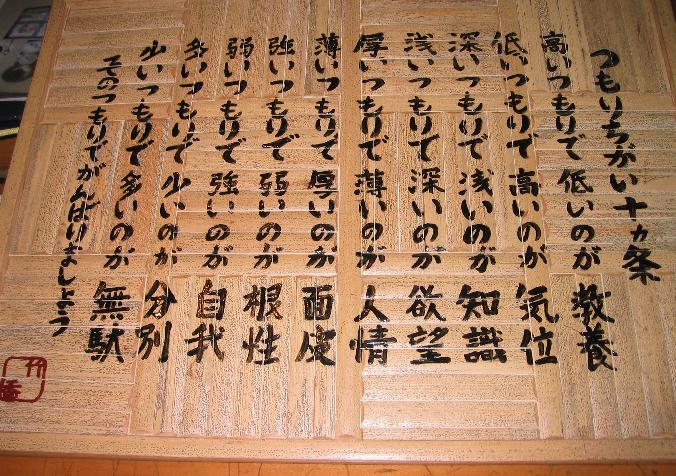 つもりちがい十カ条
高いつもりで低いのが教養
低いつもりで高いのが気位
深いつもりで浅いのが知識
浅いつもりで深いのが欲望
厚いつもりで薄いのが人情
薄いつもりで厚いのが面皮
強いつもりで弱いのが根性
弱いつもりで強いのが自我
多いつもりで少いのが分別
少いつもりで多いのが無駄
そのつもりでがんばりましょう